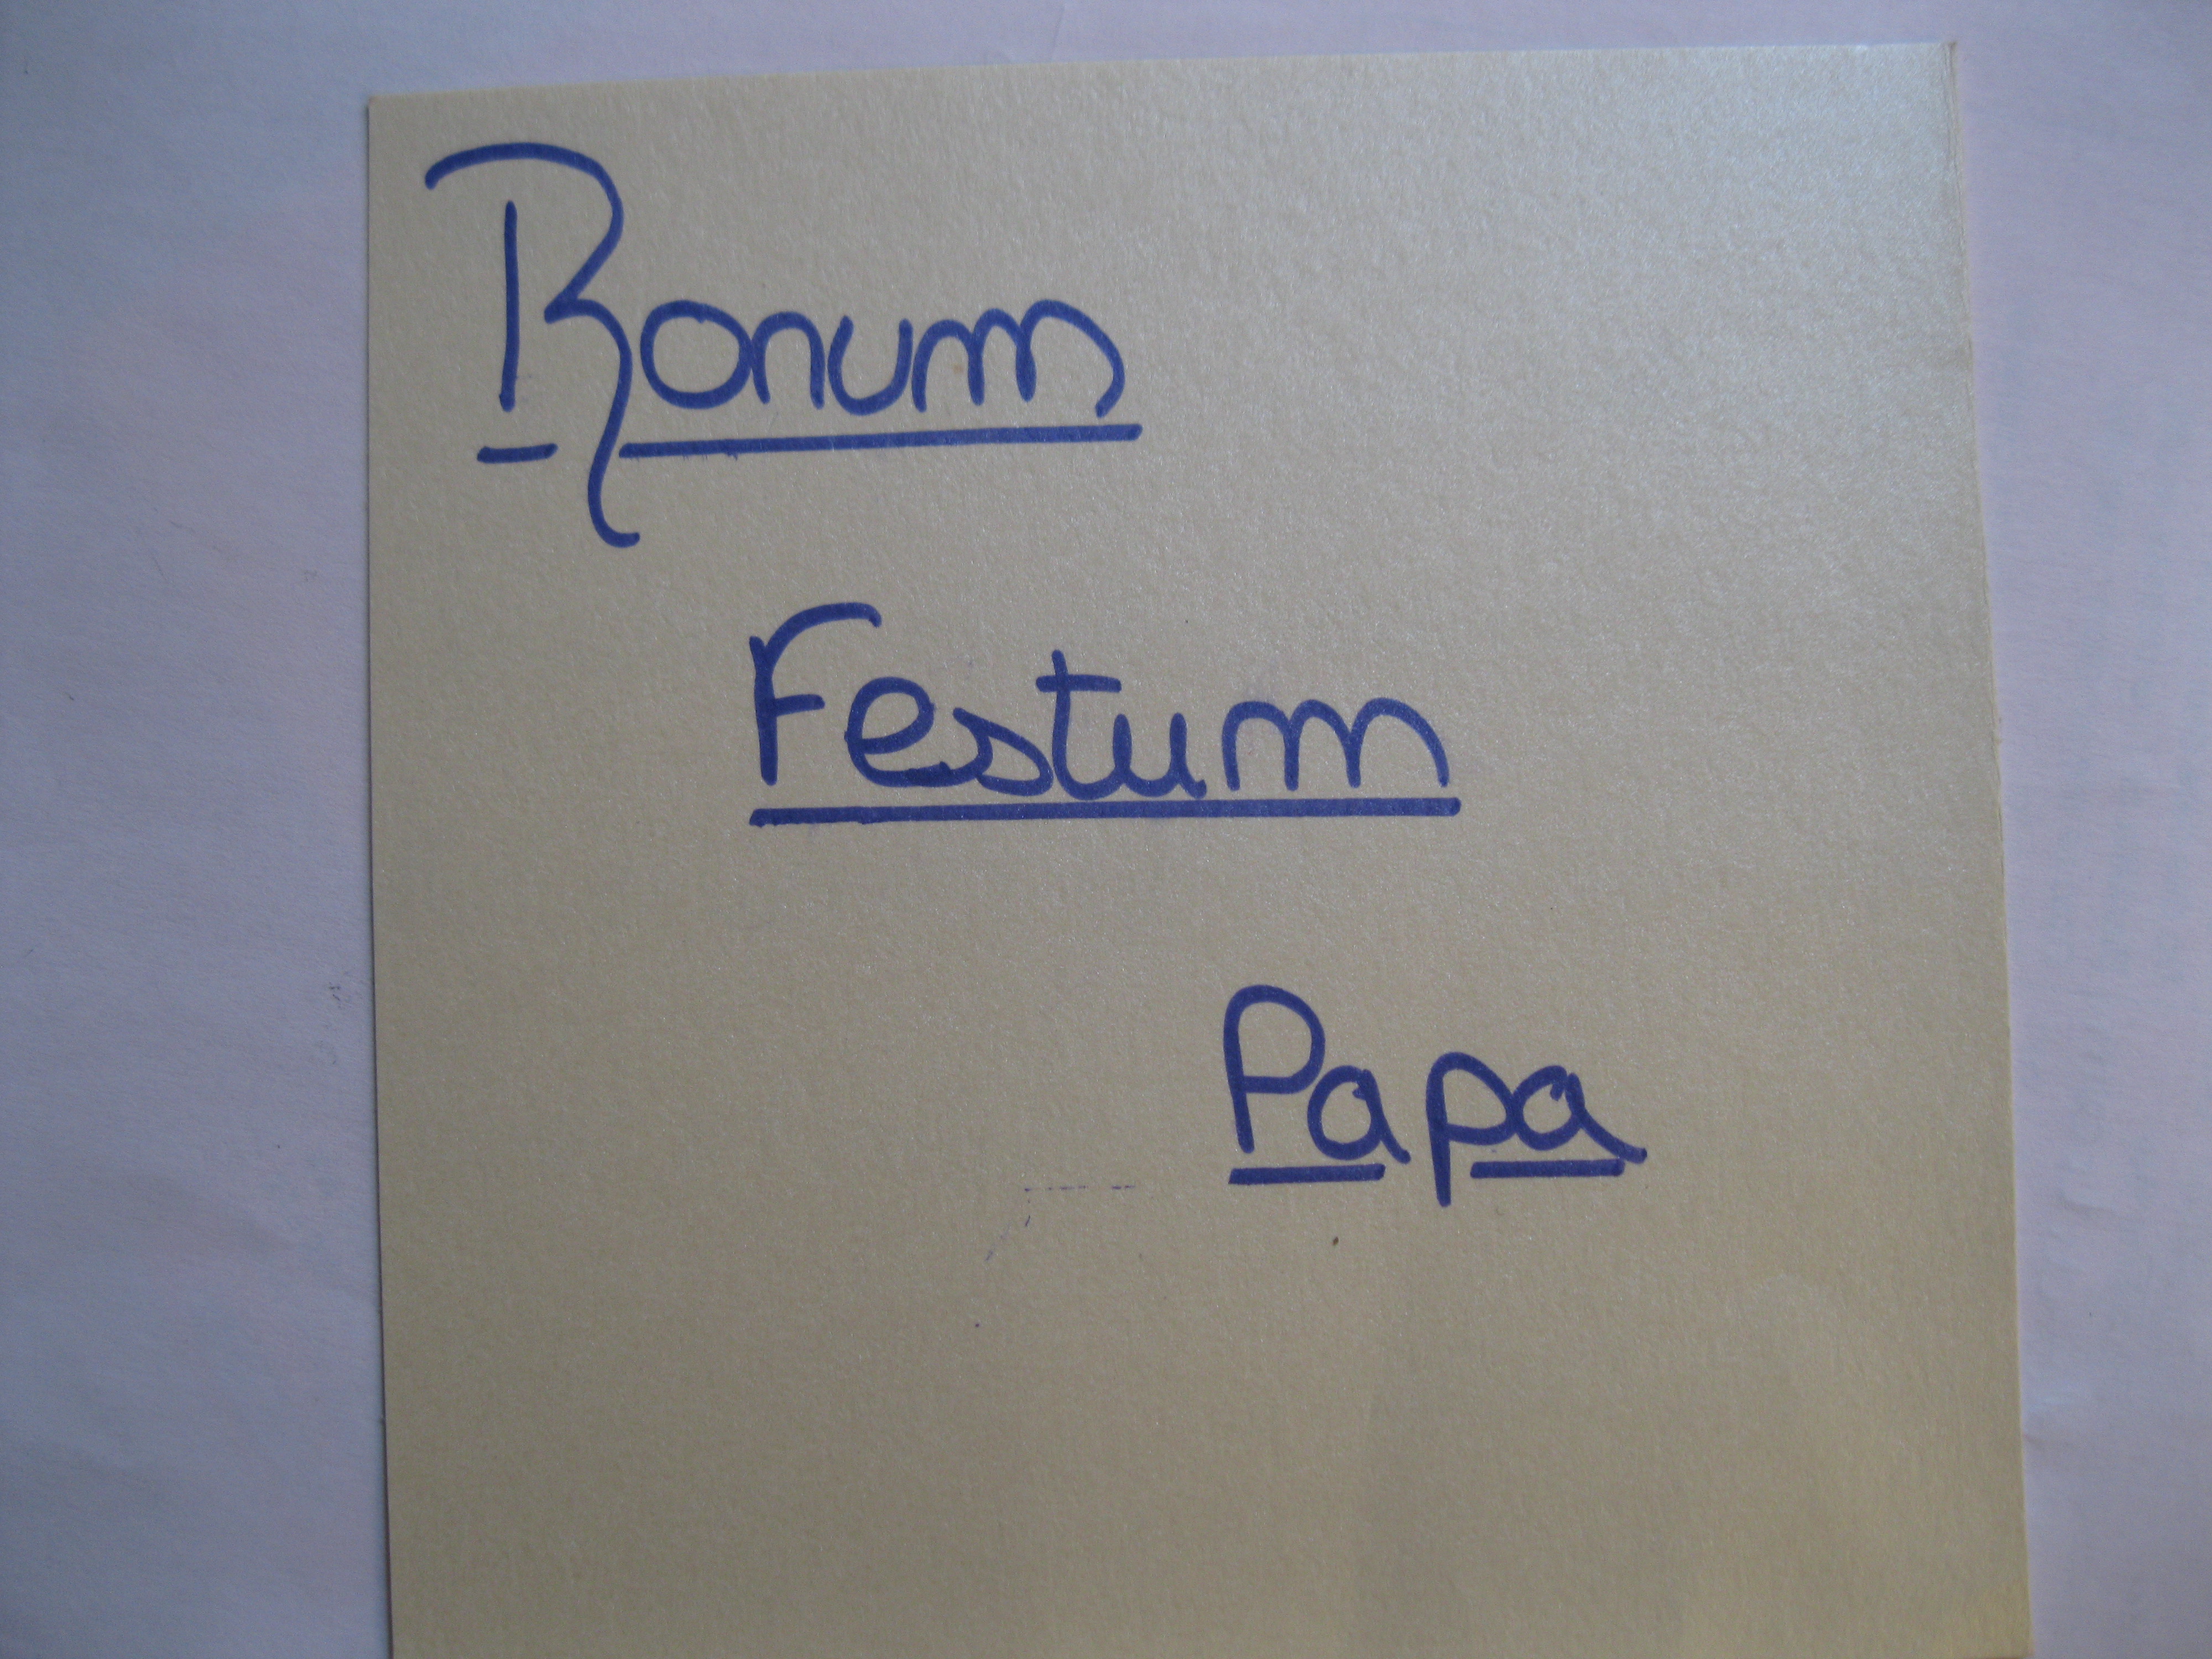 Bonum
Festum
Papa